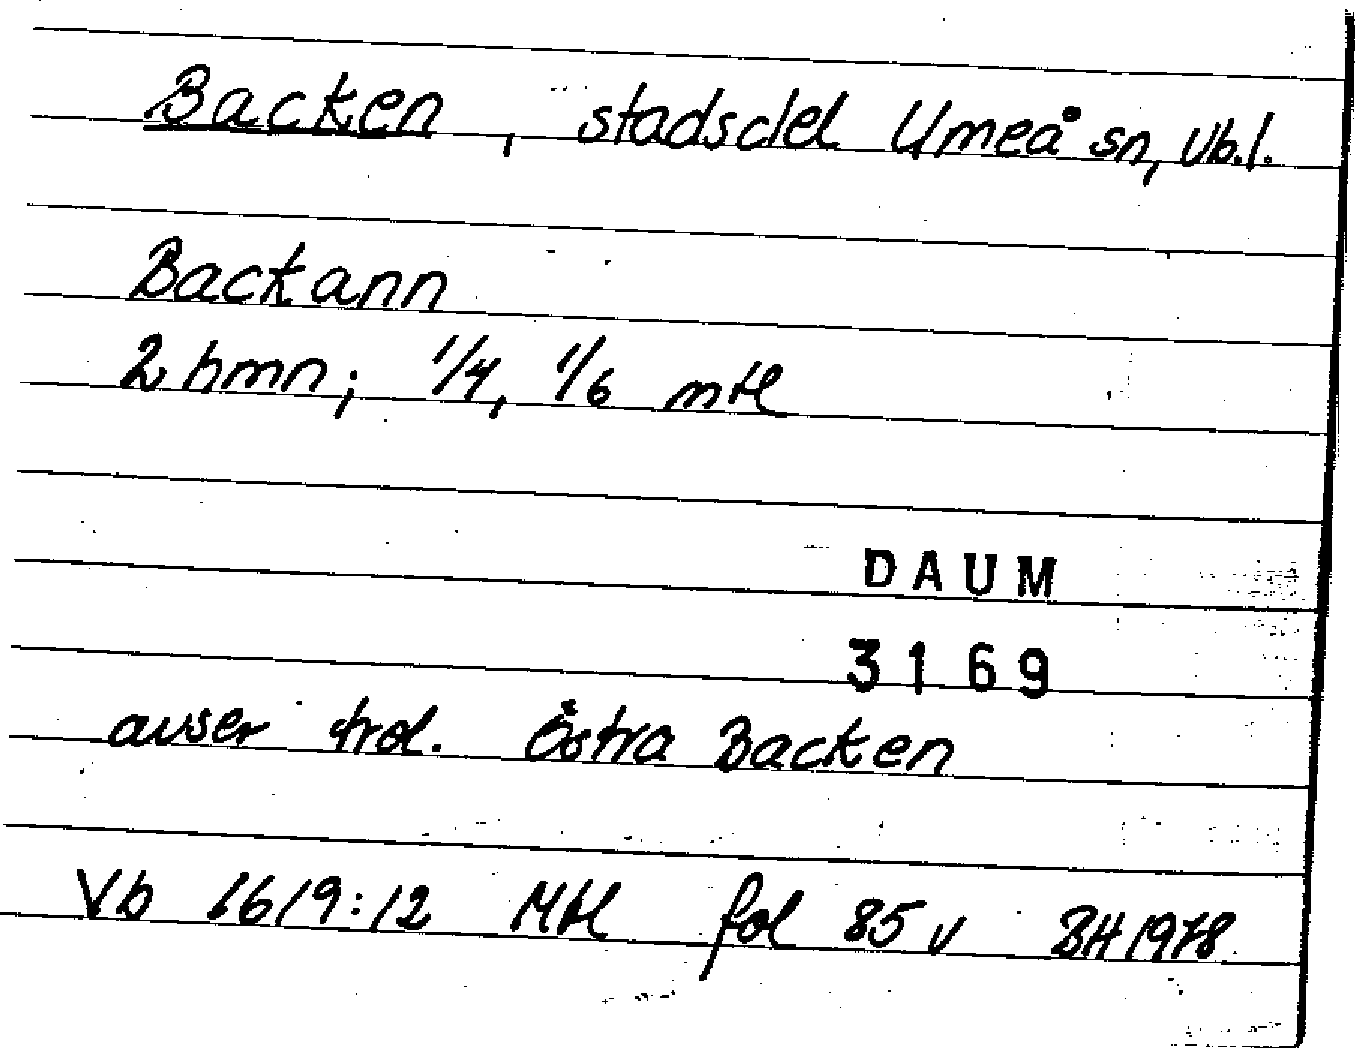 Backen, stadsdel Umeå sn, Vb.l.
Backann
2 hmn; 1/4, 1/6 mtl
DAUM
3169
avser trol. Östra Backen
Vb 1619:12 Mtl fol 85 v BH 1978